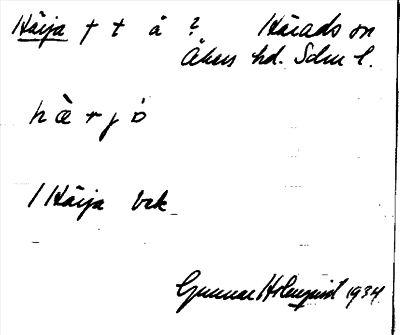 Härja †† å ? Härads sn
Åkers hd. Sdm l.
hæ̀rjo
/ Härja bäk
Gunnar Holmquist 1934